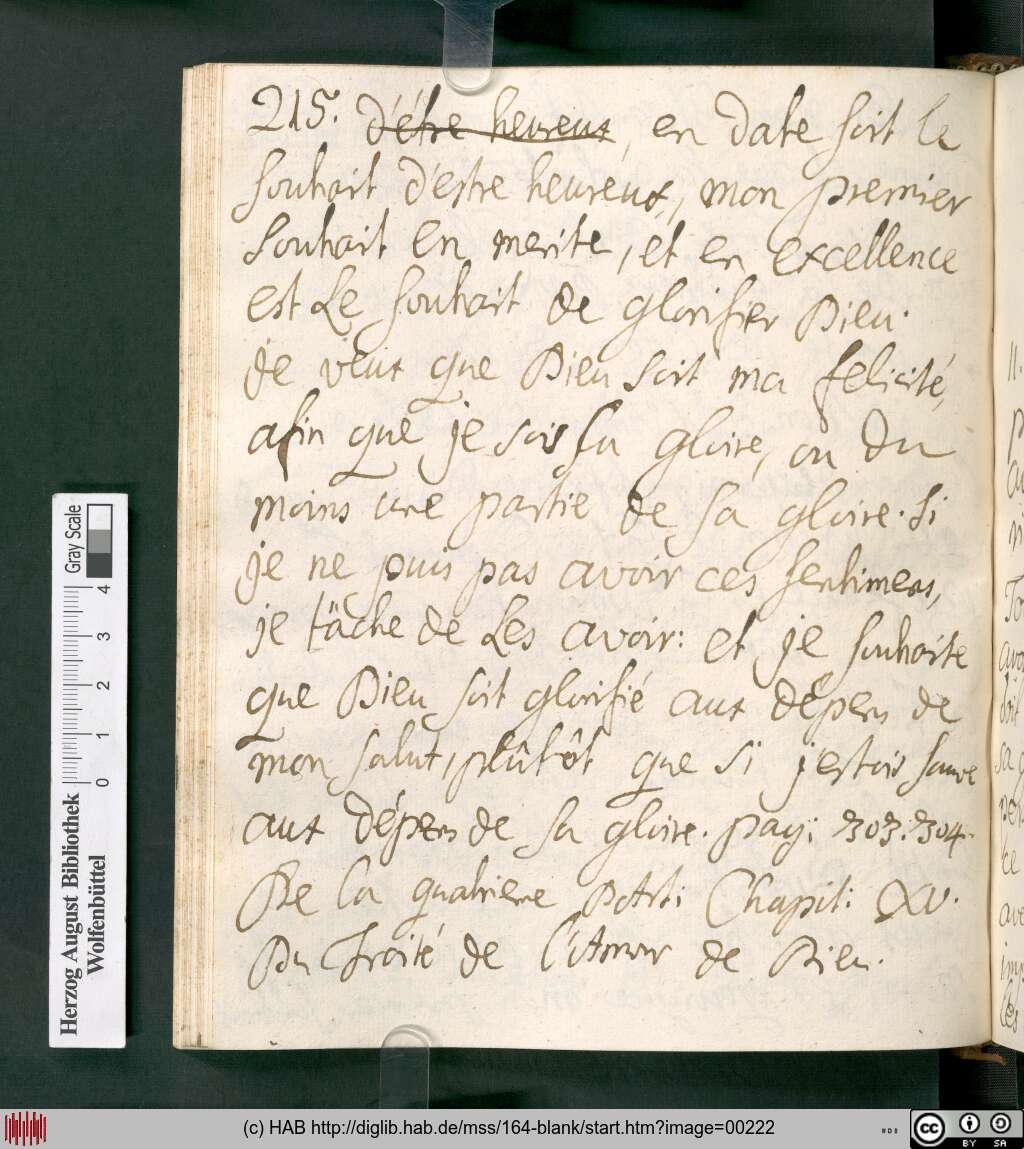 215. d'étre heureux, en date soit le
souhait d'estre heureux, mon premier
souhait en merite, et en excellence
est Le souhait de glorifier Dieu.
je veux que Dieu soit ma felicité,
afin que je sois sa gloire, ou du
moins une partie de sa gloire. si
je ne puis pas avoir ces sentimens,
je tâche de Les avoir: et je souhaite
que Dieu soit glorifié aux dépens de
mon salut, plûtôt que si j'estois sauvé
aux dépens de sa gloire. pag: 303. 304.
De la quatrieme Part: Chapit: XV.
Du Traité de l'Amour de Dieu.
Gray Scale
0 1 2 3 4
Herzog August Bibliothek
Wolfenbüttel
(c) HAB http://diglib.hab.de/mss/164-blank/start.htm?image=00222
cc BY SA